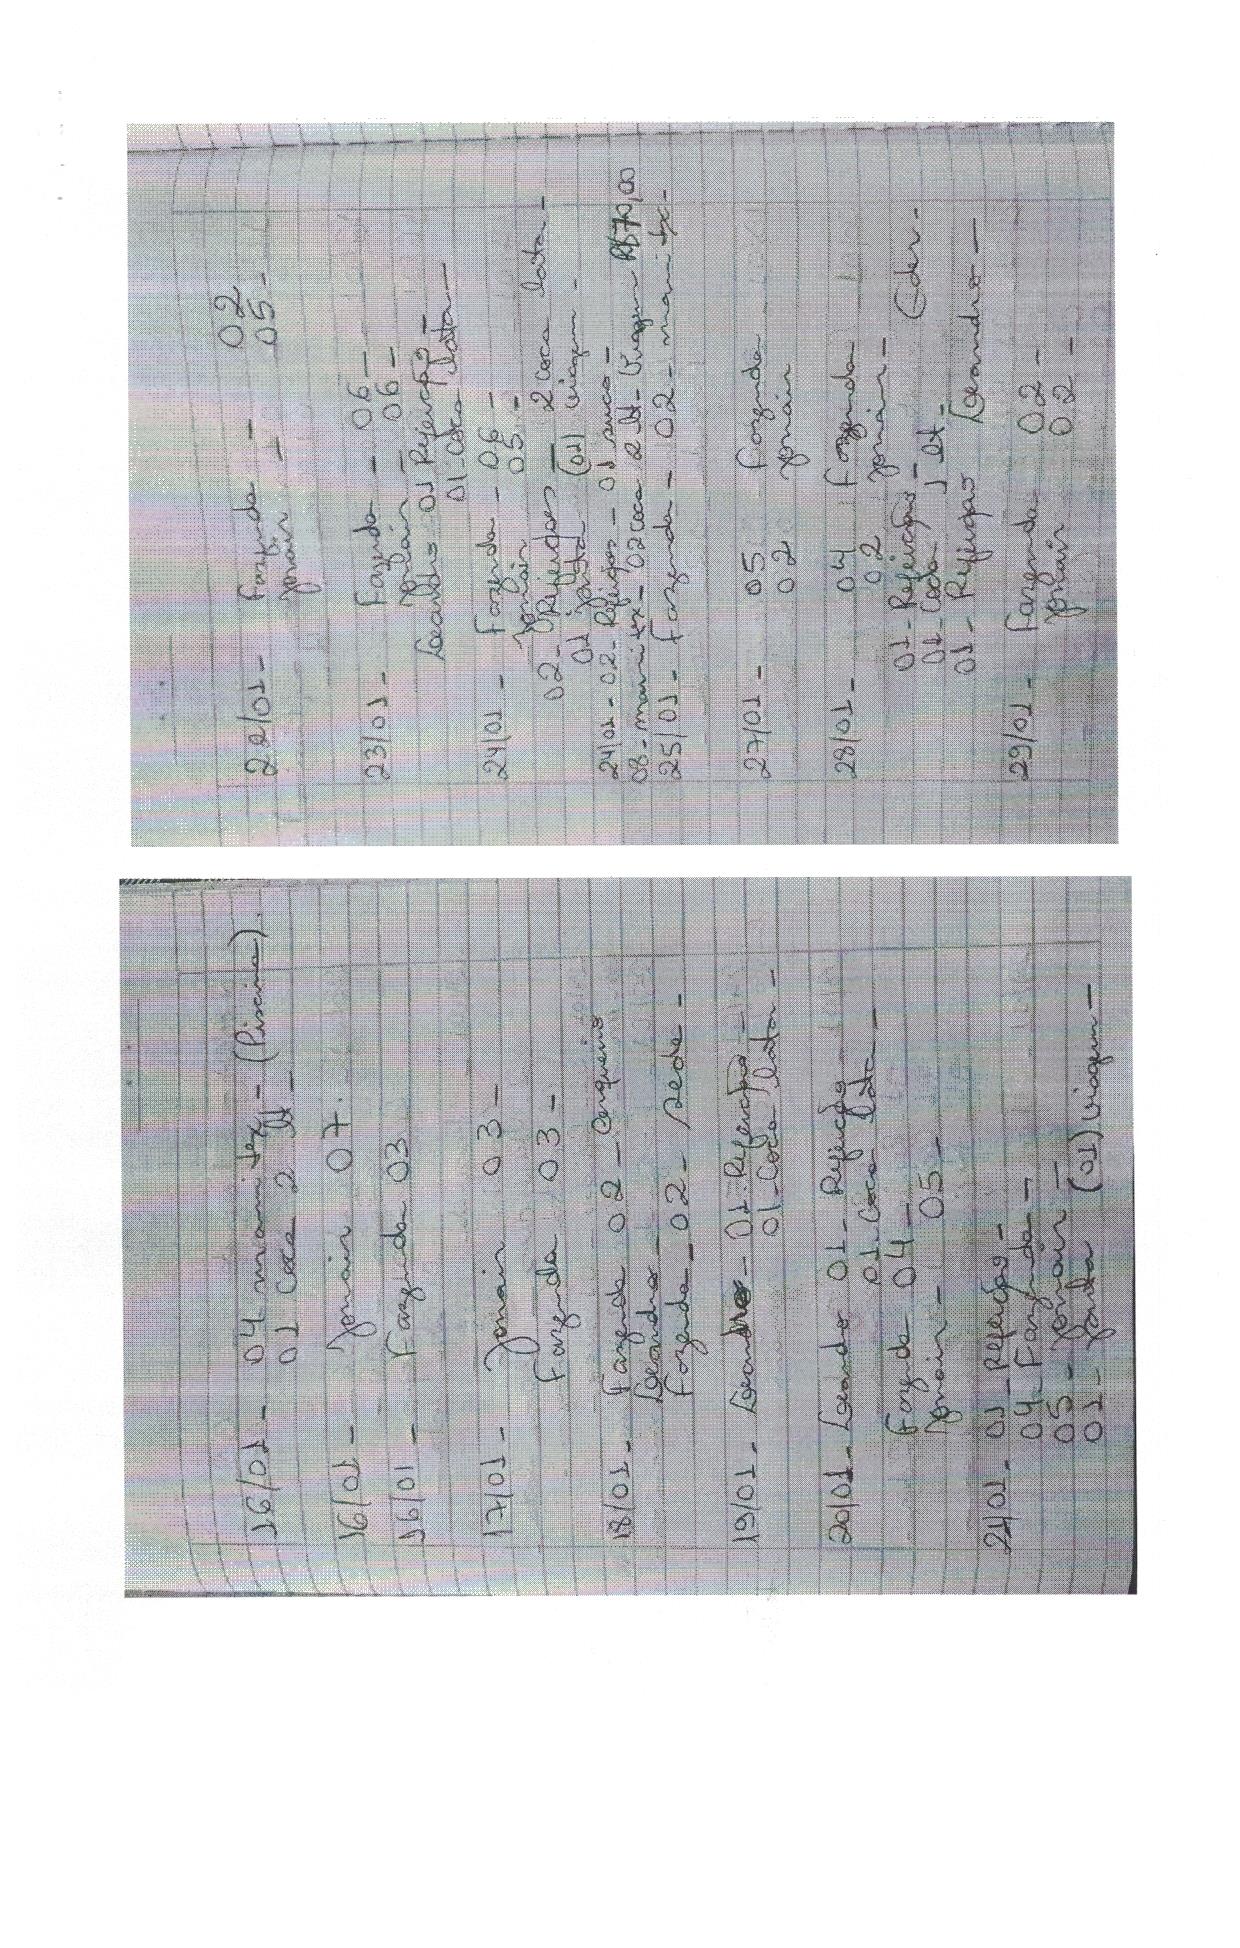 16/01 - 04 marmitex - (Piscina).
01 Coca 2 lt -
16/01 - Jonair 07.
16/01 - Fazenda 03
17/01 - Jonair 03 -
Fazenda 03 -
18/01 - Fazenda 02 - Cerqueiro
Leandro -
Fazenda - 02 - sede -
19/01 - Leandro - 01 - Refeição -
01 - Coca lata -
20/01 - Leandro 01 - Refeição
01 - Coca lata -
Fazenda 04 -
Jonair - 05 -
21/01 - 01 - Refeição -
04 - Fazenda -
05 - Jonair -
01 - Janta (01) viagem -
22/01 - Fazenda - 02
Jonair - 05 -
23/01 - Fazenda - 06 -
Jonair - 06 -
Leandro 01 Refeição -
01 - Coca lata -
24/01 - Fazenda - 06 -
Jonair 05 -
02 - Refeições - 2 Coca lata -
01 janta (01) viagem -
24/01 - 02 - Refeições - 01 suco -
08 - marmitex - 02 Coca 2 lt - Viagem R$70,00
25/01 - Fazenda - 02 - marmitx -
27/01 - 05 Fazenda
02 Jonair
28/01 - 04 Fazenda
02 Jonair -
01 - Refeição - Eder -
01 - Coca 1 lt -
01 - Refeição Leandro -
29/01 - Fazenda 02 -
Jonair 02 -